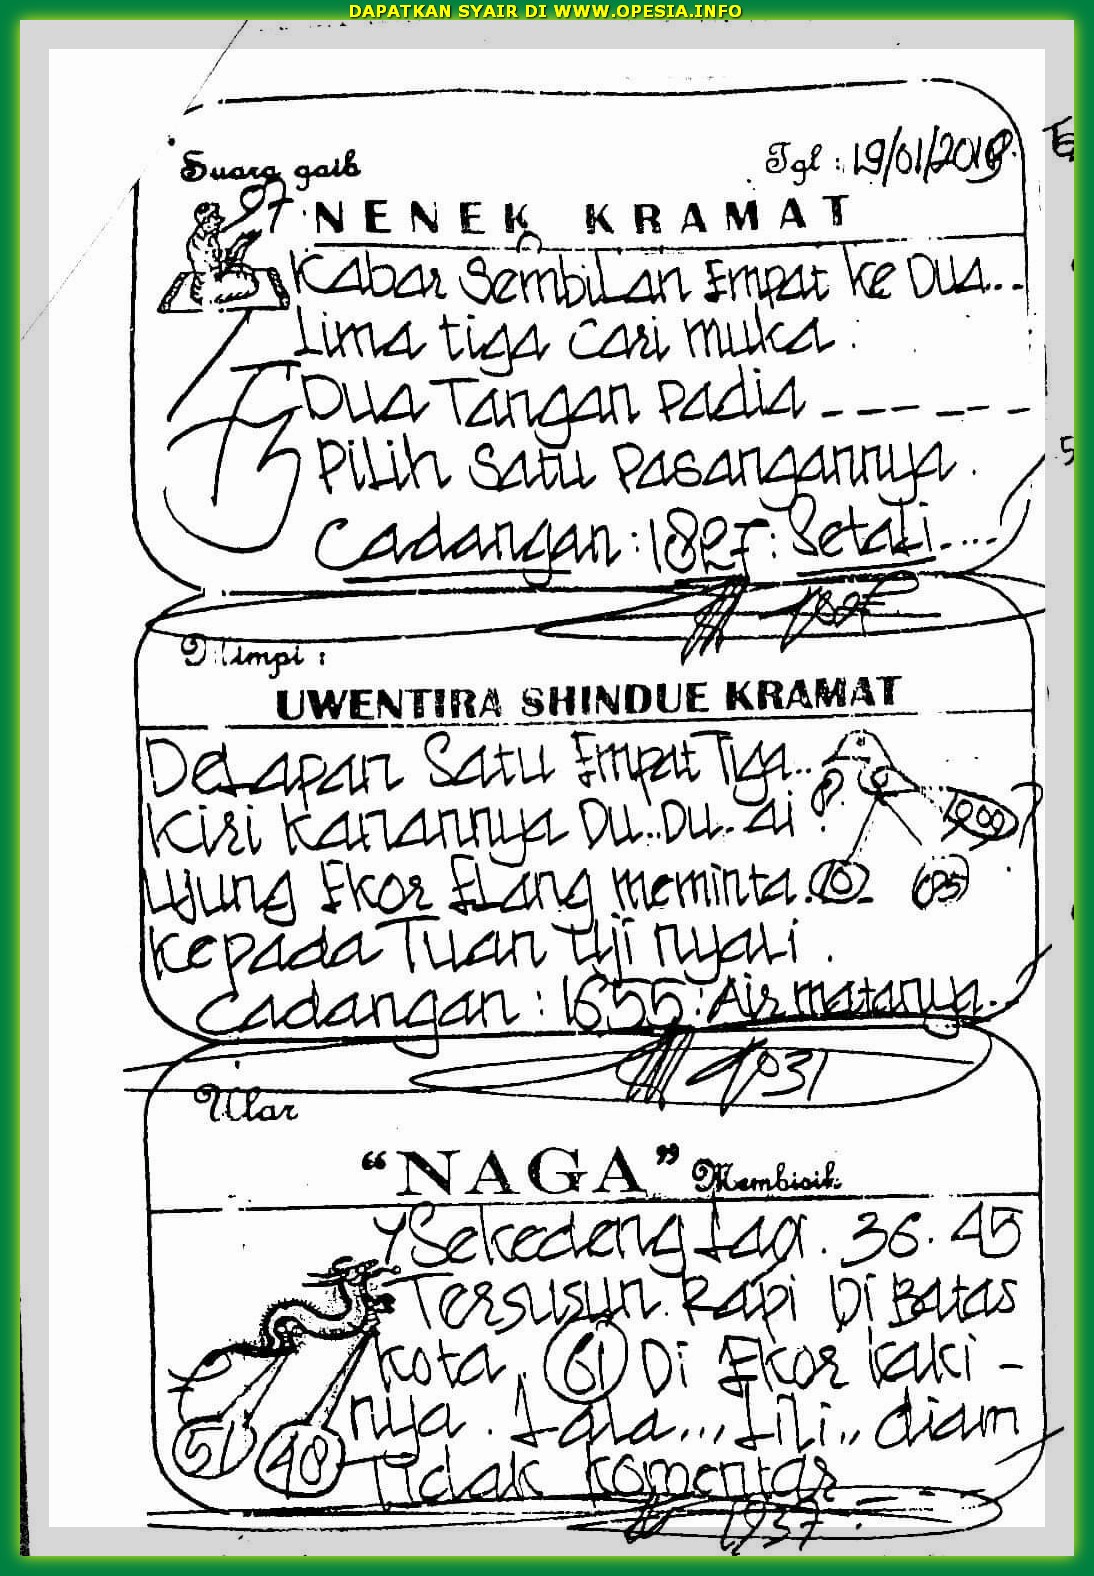 DAPATKAN SYAIR DI WWW.OPESIA.INFO
Suara gaib
Tgl : 19/01/2019
97
NENEK KRAMAT
Kabar Sembilan Empat ke Dua...
Lima tiga cari muka :
Dua Tangan padia ------
Pilih Satu Pasangannya.
Cadangan : 1827 : Setali....
1827
Mimpi :
UWENTIRA SHINDUE KRAMAT
Delapan Satu Empat Tiga...
Kiri Kanannya Du..Du..ai
Ujung Ekor Elang meminta.
Kepada Tuan Uji nyali.
Cadangan : 1655 : Air matanya...
Ular
"NAGA" Membisik:
Sekedeng lagi. 36. 45
Tersusun Rapi Di Batas
Kota. 61 Di Ekor kaki -
nya. Lala... Lili,, diam
51 48
Tidak Komentar
1937